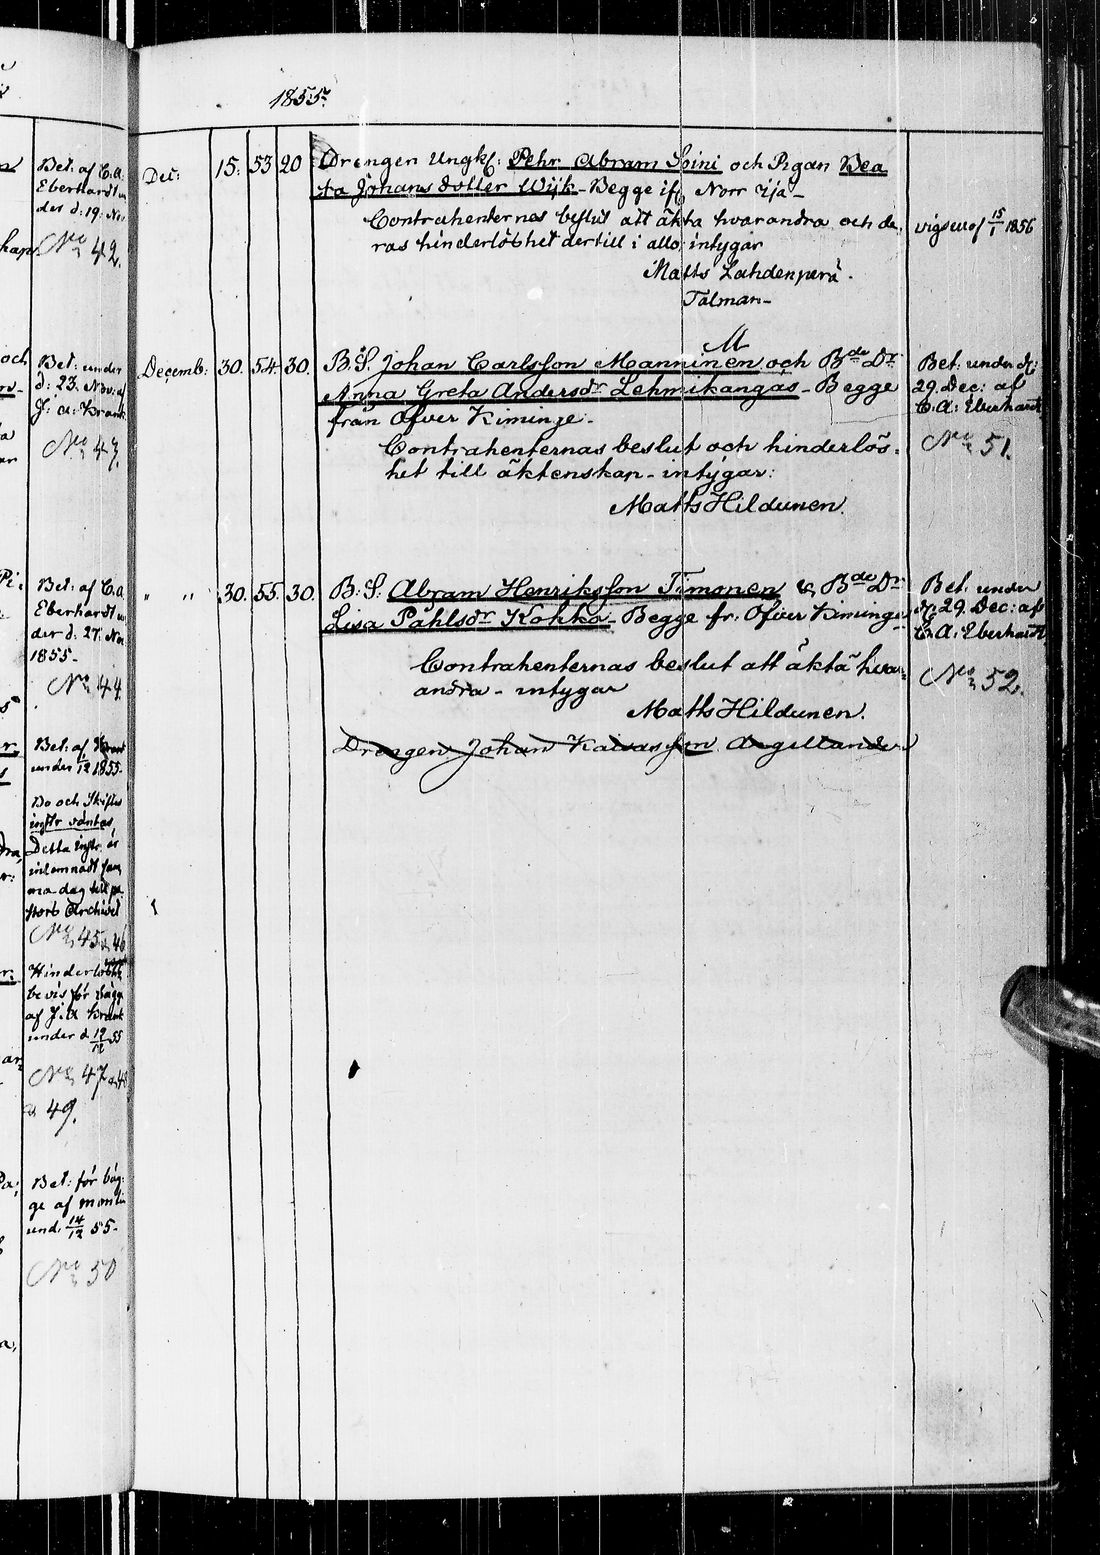 1855.
Bet: af C. A.
Eberhardt un
der d: 19: Nov
No 42.
Bet: under
d: 23. Nov: af
J: A: Krank
No 43.
Bet: af C. A.
Eberhardt un
der d: 27. Nov
1855-
No 44.
Bet: af Krank
under /12 1855-
Bo och Skiftes
instr väntas
Detta instr är
inlemnadt sam
ma dag till pa
stors Archivet
No 45 & 46
Hinderlöshts
bevis för bägge
af J. A Krank
under d 12/12 55
No 47 & 48
& 49.
Bet: för bäg-
ge af
und. 14/12 55-
No 50
Dec: 15. 53 20 Drengen Ungk: Pehr Abram Soini och Pigan Bea
ta Johans dotter Wijk - Begge ifr Norr Ijå -
Contrahenternas beslut att äkta hvarandra och de-
ras hinderlöshet dertill i allo intygar
Matts Lahdenperä.
Talman-
15/1 1856
Decemb: 30. 54. 30. B. S. Johan Carlsson Manninen och Bde Dr
Anna Greta Andersdr Lehmikangas - Begge
från Öfver Kiminge.
Contrahenternas beslut och hinderlös-
het till äktenskap - intygar:
Matts Hildunen.
Bet: under d:
29. Dec: af
C. A: Eberhardt
No 51.
" " 30. 55. 30. B: S: Abram Henriksson Timonen & Bde Dr
Lisa Påhlsdr Kokko - Begge fr: Öfver Kiminge
Contrahenternas beslut att äkta hvar-
andra - intygar
Matts Hildunen.
Bet: under
d: 29. Dec: af
C. A: Eberhardt
No 52.
Drengen Johan